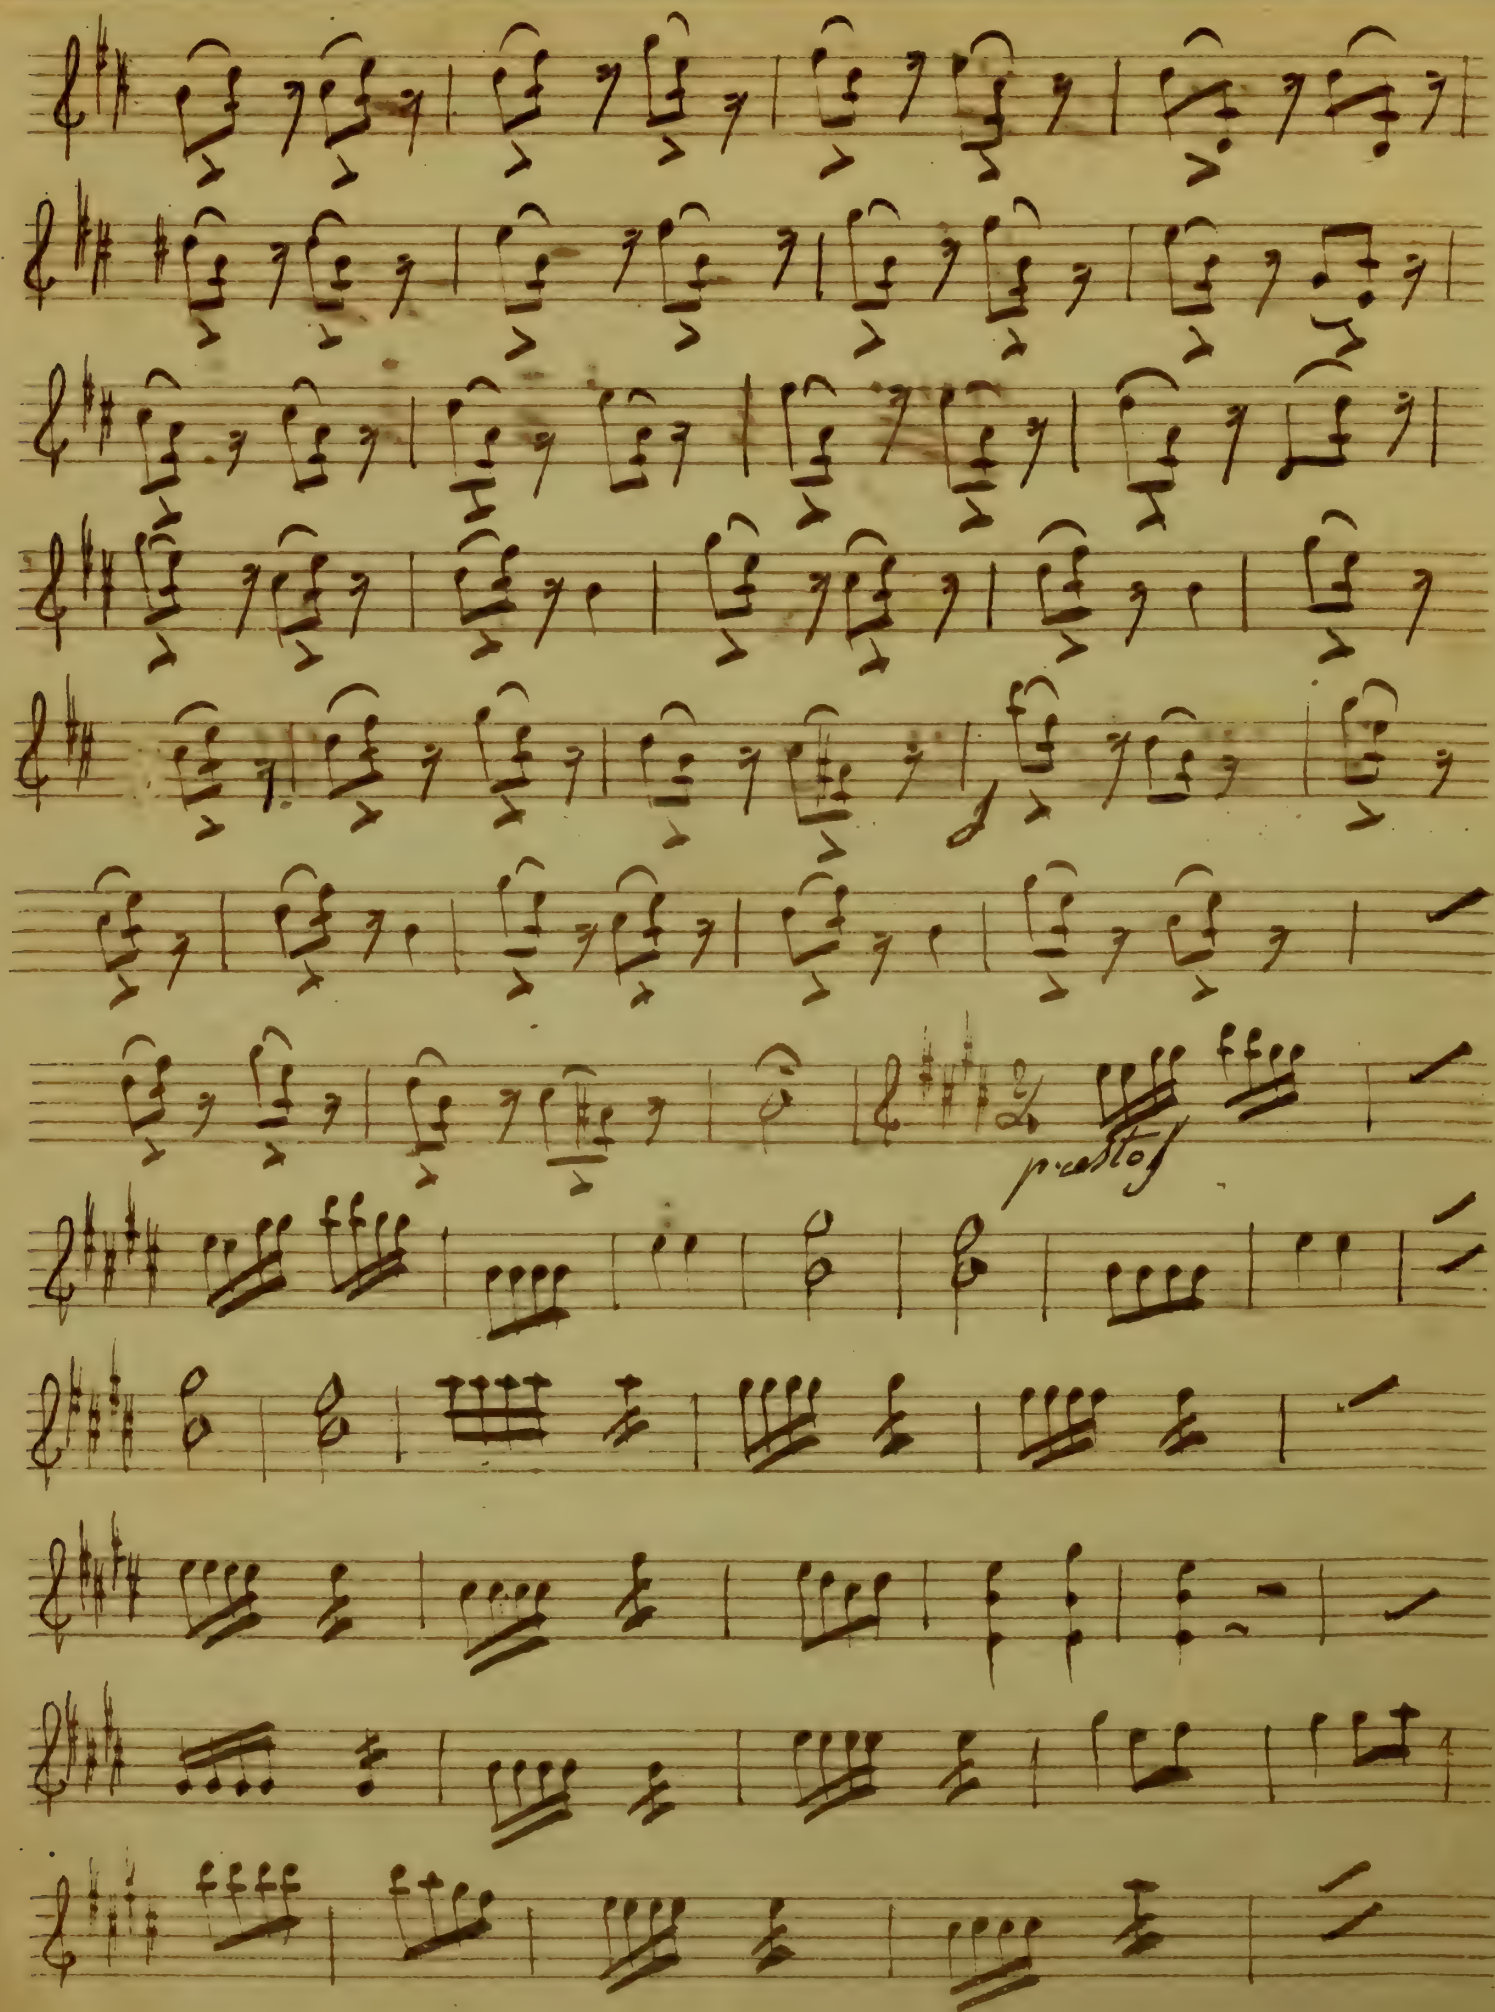 f
presto f